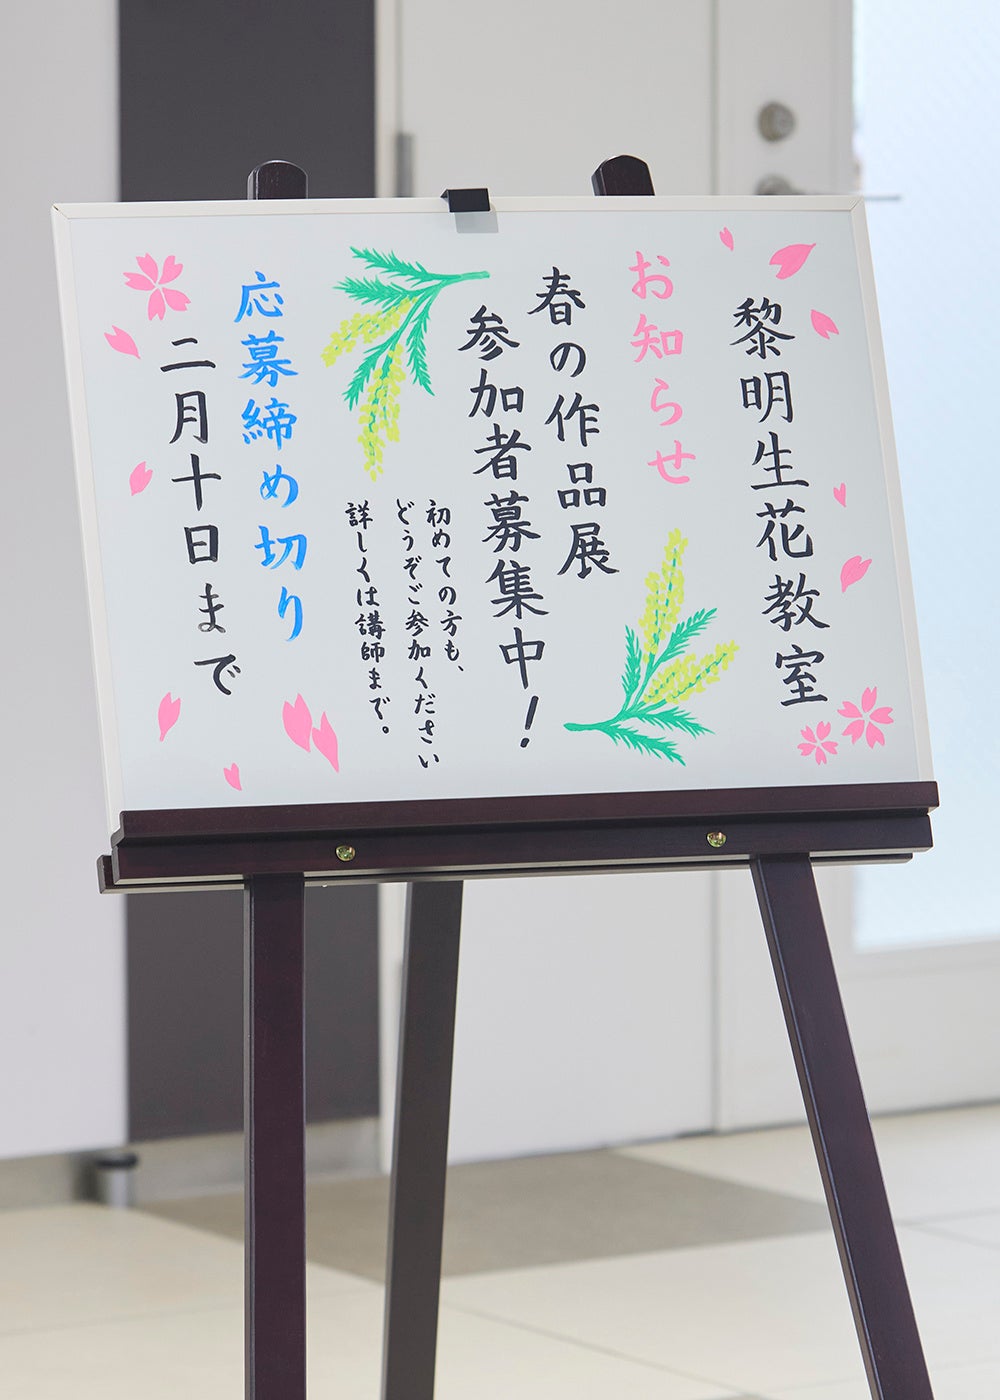 黎明生花教室
お知らせ
春の作品展
参加者募集中！
初めての方も、
どうぞご参加ください
詳しくは講師まで。
応募締め切り
二月十日まで